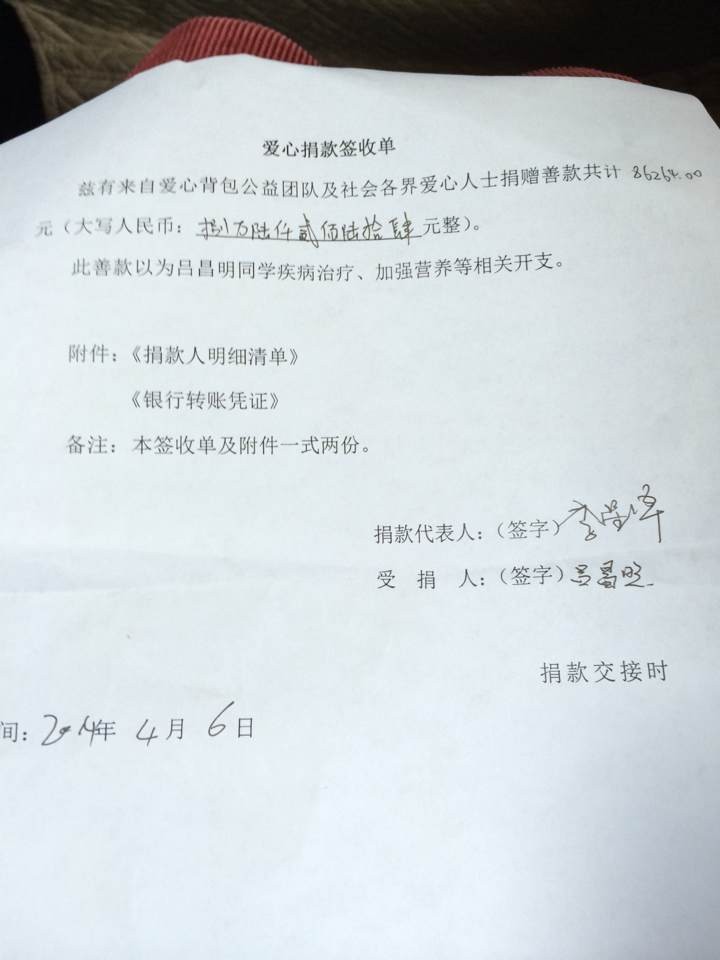 爱心捐款签收单
兹有来自爱心背包公益团队及社会各界爱心人士捐赠善款共计 86264.00
元（大写人民币：捌万陆仟贰佰陆拾肆元整）。
此善款以为吕昌明同学疾病治疗、加强营养等相关开支。
附件：《捐款人明细清单》
《银行转账凭证》
备注：本签收单及附件一式两份。
捐款代表人：（签字）李
受 捐 人：（签字）吕昌明
捐款交接时
间：2014年 4月 6日